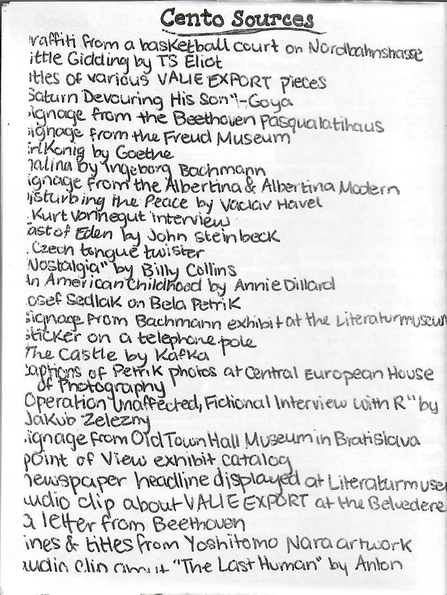 Cento Sources
raffiti from a basketball court on Nordbahnstrasse
ittle Gidding by TS Eliot
itles of various VALIE EXPORT pieces
Saturn Devouring His Son"-Goya
ignage from the Beethoven Pasqualatihaus
ignage from the Freud Museum
rlKonig by Goethe
alina by Ingeborg Bachmann
ignage from the Albertina & Albertina Modern
isturbing the Peace by Vaclav Havel
Kurt Vonnegut interview
ast of Eden by John Steinbeck
Czech tongue twister
Nostalgia" by Billy Collins
An American Childhood by Annie Dillard
osef Sedlak on Bela Petrik
Signage from Bachmann exhibit at the Literaturmuseum
sticker on a telephone pole
The Castle by Kafka
captions of Petrik photos at Central European House
of Photography
Operation Unaffected, Fictional Interview with R" by
Jakub Zelezny
ignage from Old Town Hall Museum in Bratislava
point of View exhibit catalog
newspaper headline displayed at Literaturmuse
audio clip about VALIE EXPORT at the Belvedere
a letter from Beethoven
ines & titles from Yoshitomo Nara artwork
audio clip "The Last Human" by Anton